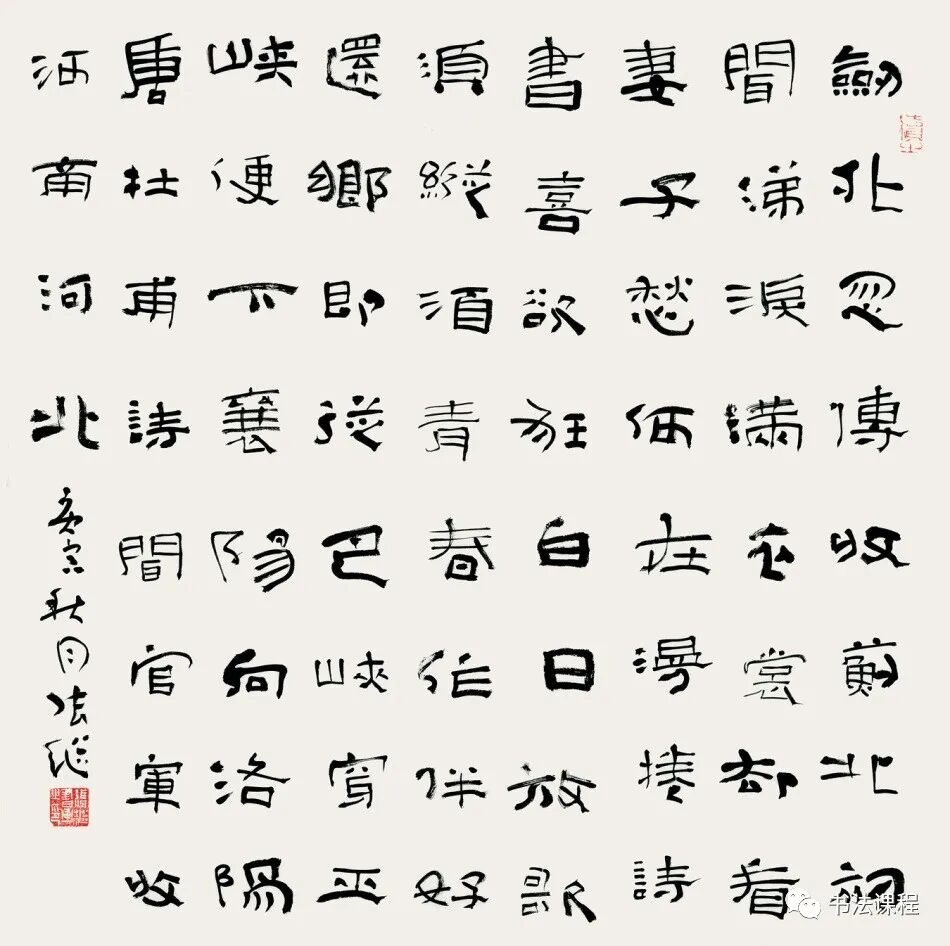 劒外忽傳收薊北初
聞涕淚滿衣裳却看
妻子愁何在漫捲詩
書喜欲狂白日放歌
須縱酒青春作伴好
還鄉即從巴峽穿巫
峽便下襄陽向洛陽
唐杜甫詩聞官軍收
河南河北
庚寅秋月张继
书法课程